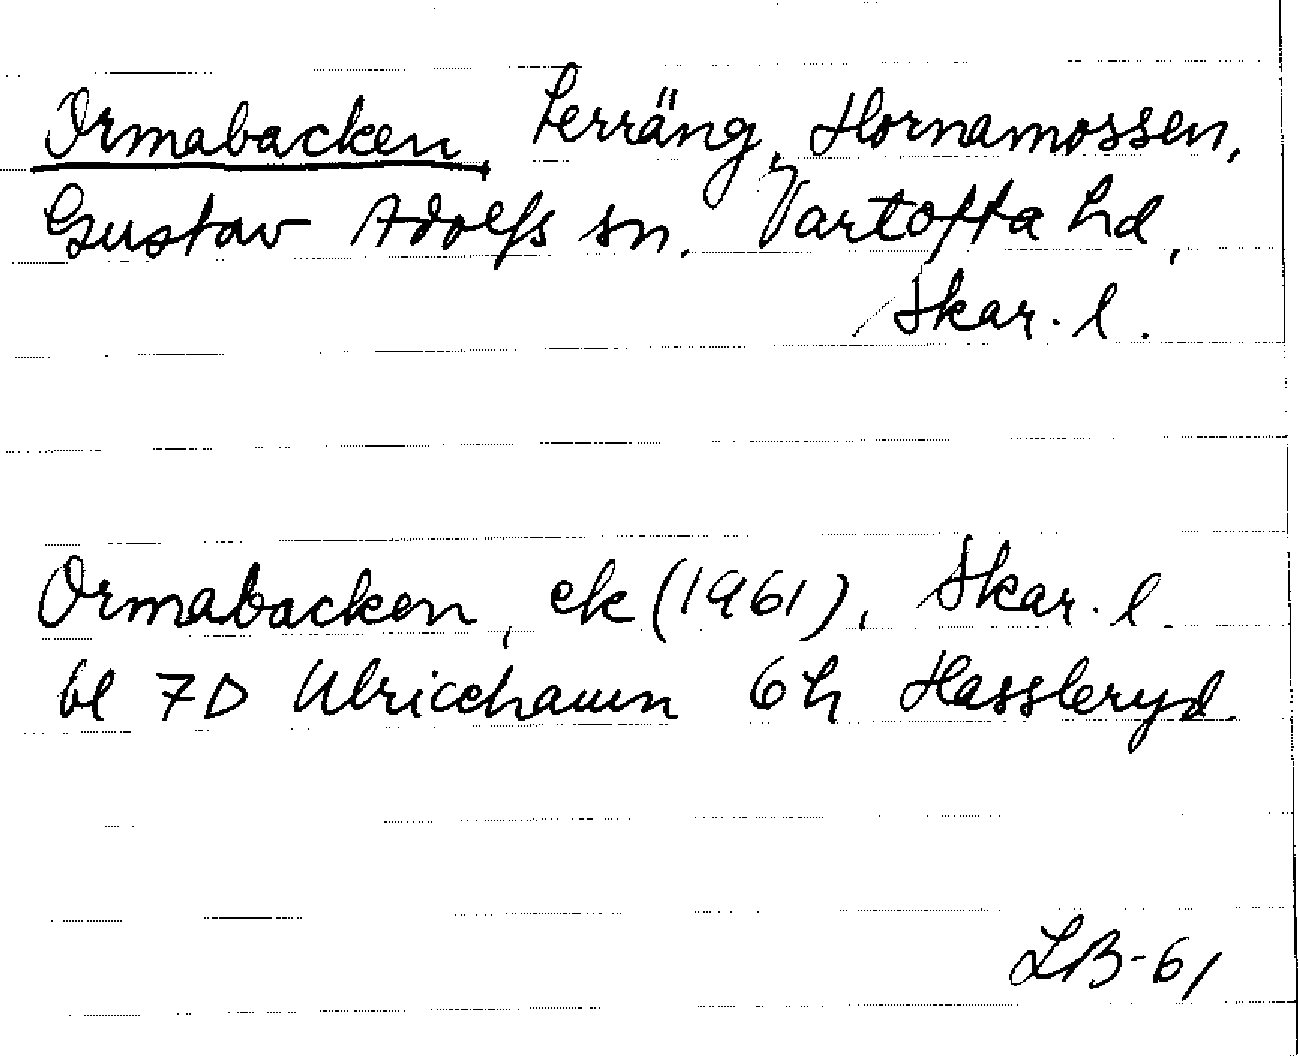 Ormabacken, terräng, Hornamossen,
Gustav Adolfs sn, Vartofta hd,
Skar. l.
Ormabacken, ek (1961), Skar. l
bl 7D Ulricehamn 6h Hassleryd
LB-61